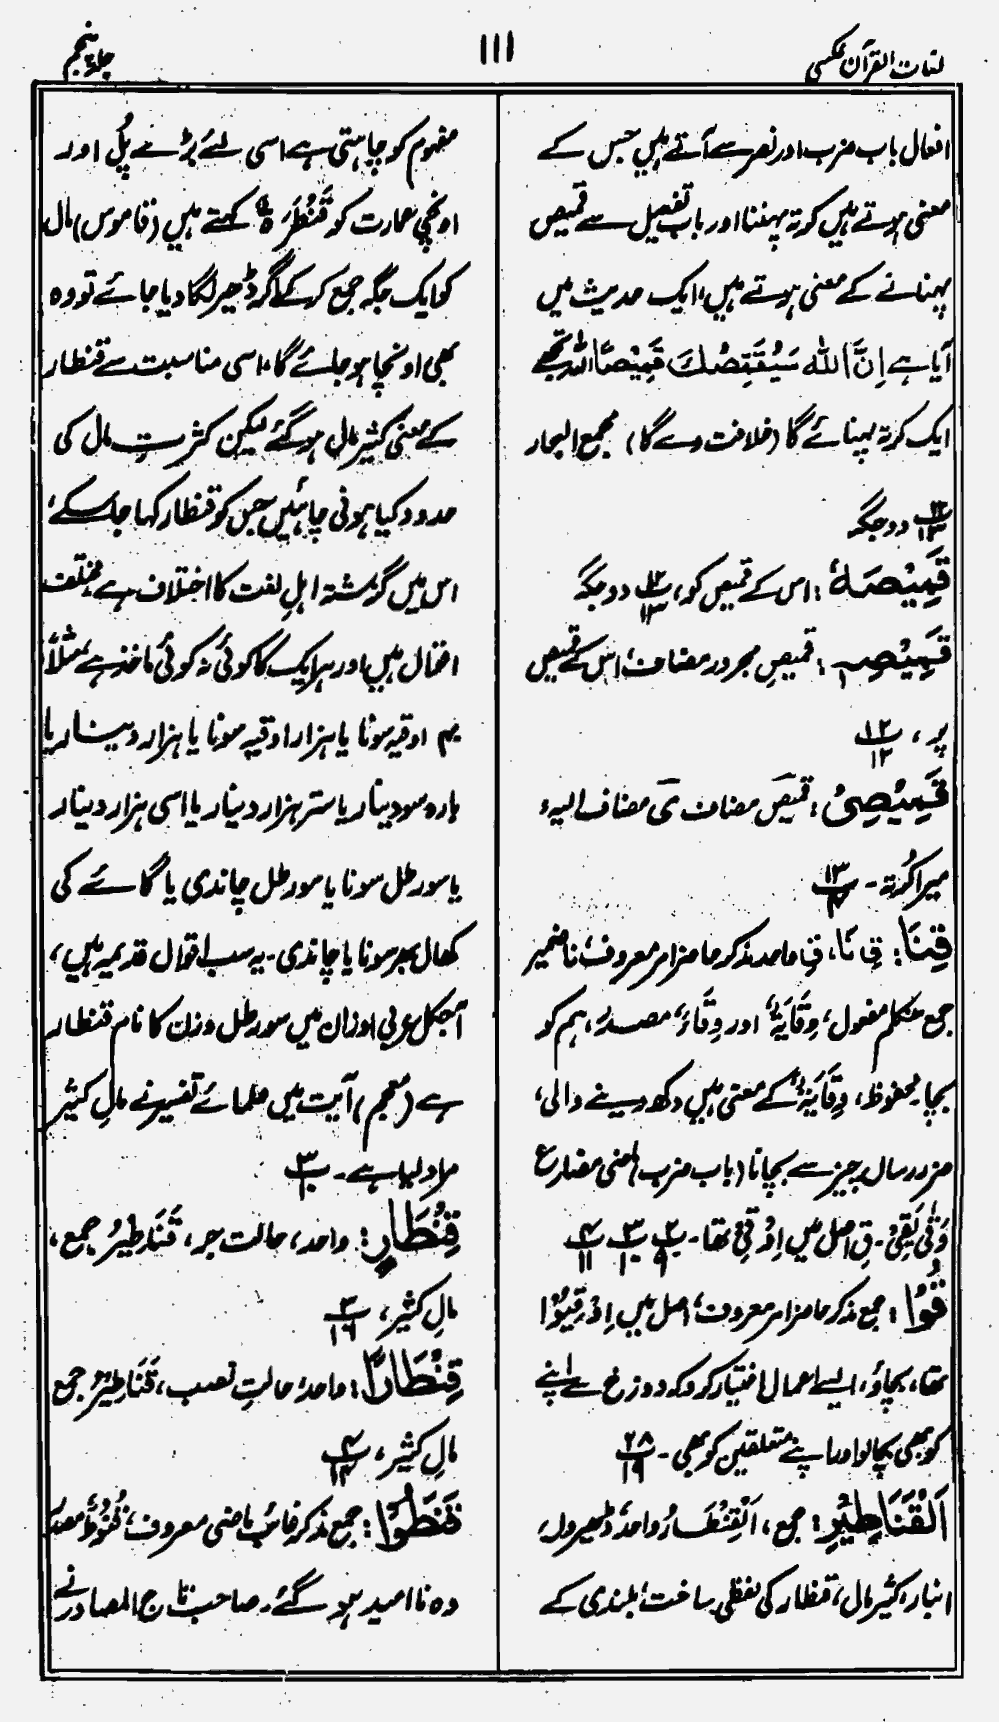 لغات القرآن عکسی
۱۱۱
جلد پنجم
افعال باب ضرب اور نصر سے آتے ہیں جس کے
معنی ہوتے ہیں کرتہ پہننا اور باب تفعیل سے قمیص
پہنانے کے معنی ہوتے ہیں، ایک حدیث میں
آیا ہے اِنَّ اللہ سَیُقَمِّصُكَ قَمِیْصًا اللہ تجھے
ایک کرتہ پہنائے گا (خلافت دے گا) مجمع البحار
۱۲/۱۳ دو جگہ
قَمِیْصَہٗ: اس کے قمیص کو، ۱۲/۱۳ دو جگہ
قَمِیْصِہٖ: قمیصِ مجرور مضاف، اس کے قمیص
پر، ۱۲/۱۲
قَمِیْصِیْ: قمیصَ مضاف یَ مضاف الیہ،
میرا کُرتہ۔ ۱۳/۴
قِنَا: قِ نَا، قِ واحد مذکر حاضر امر معروف، نا ضمیر
جمع متکلم مفعول، وِقَایَۃٌ اور وِقَاءٌ، مصدر، ہم کو
بچا۔ محفوظ، وِقَایَۃٌ کے معنی ہیں دکھ دینے والی،
ضرر رساں چیز سے بچانا (باب ضرب) ماضی مضارع
وَقٰی یَقِیْ۔ قِ اصل میں اِوْقِیْ تھا۔ ۲/۹ ۳/۱۰ ۴/۱۱
قُوْا: جمع مذکر حاضر امر معروف، اصل میں اِوْقِیُوْا
تھا، بچاؤ، ایسے اعمال اختیار کرو کہ دوزخ سے اپنے
کو بھی بچا لو اور اپنے متعلقین کو بھی۔ ۲۸/۱۹
اَلْقَنَاطِیْرِ: جمع، اَلْقِنْطَارُ واحد، ڈھیروں،
انبار، کثیر مال، قنطار کی لفظی ساخت، بلندی کے
مفہوم کو چاہتی ہے اسی لئے بڑے پُل اور
اونچی عمارت کو قَنْطَرَۃٌ کہتے ہیں (قاموس) مال
کو ایک جگہ جمع کرکے اگر ڈھیر لگا دیا جائے تو وہ
بھی اونچا ہو جائے گا، اسی مناسبت سے قنطار
کے معنی کثیر مال ہو گئے لیکن کثرت مال کی
حدود کیا ہونی چاہئیں جس کو قنطار کہا جا سکے،
اس میں گزشتہ اہلِ لغت کا اختلاف ہے، مختلف
اقوال ہیں اور ہر ایک کا کوئی نہ کوئی ماخذ ہے، مثلاً
۴۰ اوقیہ سونا یا ہزار اوقیہ سونا یا ہزار دینار یا
بارہ سو دینار یا ستر ہزار دینار یا اسی ہزار دینار
یا سو رطل سونا یا سو رطل چاندی یا گائے کی
کھال بھر سونا یا چاندی۔ یہ سب اقوال قدیمہ ہیں،
آجکل عربی اوزان میں سو رطل وزن کا نام قنطار
ہے (معجم) آیت میں علمائے تفسیر نے مالِ کثیر
مراد لیا ہے۔ ۳/۱۰
قِنْطَارٍ: واحد، حالت جر، قَنَاطِیْرُ جمع،
مالِ کثیر، ۳/۱۶
قِنْطَارًا: واحد، حالتِ نصب، قَنَاطِیْرُ جمع
مالِ کثیر، ۴/۱۴
قَنَطُوْا: جمع مذکر غائب ماضی معروف، قُنُوْطٌ مصدر
وہ نا امید ہو گئے۔ صاحب تاج المصادر نے